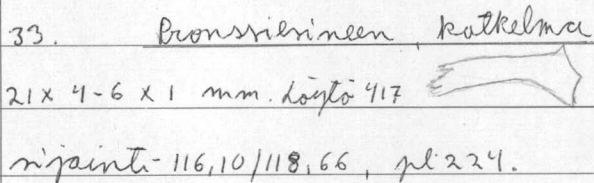 33. Bronssiesineen, katkelma
21 x 4-6 x 1 mm. Löytö 417
sijainti- 116,10/118,66, pl 224.